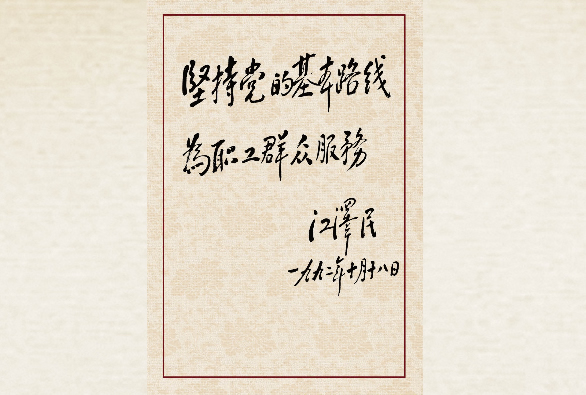 坚持党的基本路线
為职工群众服務
江澤民
一九九二年十月十八日